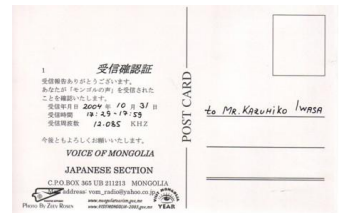 1
受信確認証
受信報告ありがとうございます。
あなたが「モンゴルの声」を受信された
ことを確認いたします。
受信年月日 2004 年 10 月 31 日
受信時間 17:29-17:59
受信周波数 12.085 KHZ
今後ともよろしくお願いいたします。
VOICE OF MONGOLIA
JAPANESE SECTION
C.P.O.BOX 365 UB 211213 MONGOLIA
address: vom_radio@yahoo.com
Photo By Zeev Rosen
www.mongoliatourism.gov.mn
YEAR
POST CARD
to MR. KAZUHIKO IWASA